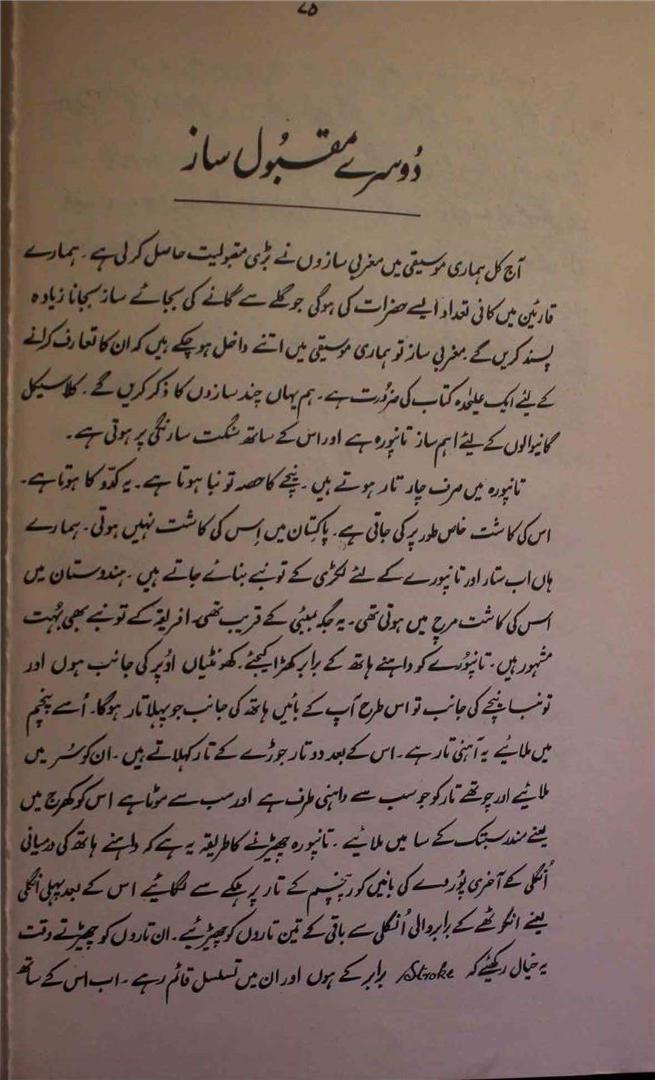 ۷۵
دُوسرے مقبُول ساز
آج کل ہماری موسیقی میں مغربی سازوں نے بڑی مقبولیت حاصل کر لی ہے۔ ہمارے
قارئین میں کافی تعداد ایسے حضرات کی ہوگی جو گلے سے گانے کی بجائے ساز بجانا زیادہ
پسند کریں گے۔ مغربی ساز تو ہماری موسیقی میں اتنے داخل ہو چکے ہیں کہ ان کا تعارف کرانے
کے لئے ایک علیٰحدہ کتاب کی ضرورت ہے۔ ہم یہاں چند سازوں کا ذکر کریں گے۔ کلاسیکل
گانیوالوں کے لئے اہم ساز تانپورہ ہے اور اس کے ساتھ سنگت سارنگی پر ہوتی ہے۔
تانپورہ میں صرف چار تار ہوتے ہیں۔ نیچے کا حصہ تونبا ہوتا ہے۔ یہ کدّو کا ہوتا ہے۔
اس کی کاشت خاص طور پر کی جاتی ہے۔ پاکستان میں اِس کی کاشت نہیں ہوتی۔ ہمارے
ہاں اب ستار اور تانپورے کے لئے لکڑی کے تونبے بنائے جاتے ہیں۔ ہندوستان میں
اس کی کاشت مرچ میں ہوتی تھی۔ یہ جگہ بمبئی کے قریب تھی۔ افریقہ کے تونبے بھی بہُت
مشہور ہیں۔ تانپوُرے کو داہنے ہاتھ کے برابر کھڑا کیجئے۔ کھونٹیاں اوُپر کی جانب ہوں اور
تونبا نیچے کی جانب تو اس طرح آپ کے بائیں ہاتھ کی جانب جو پہلا تار ہوگا۔ اُسے پنچم
میں ملائیے یہ آہنی تار ہے۔ اس کے بعد دو تار جوڑے کے تار کہلاتے ہیں۔ ان کو سُر میں
ملائیے اور چوتھے تار کو جو سب سے داہنی طرف ہے اور سب سے موٹا ہے اس کو کھرج میں
یعنے مندر سبتک کے سا میں ملائیے۔ تانپورہ چھیڑنے کا طریقہ یہ ہے کہ داہنے ہاتھ کی درمیانی
اُنگلی کے آخری پوُروے کی بائیں کور پنچم کے تار پر ہلکے سے لگائیے اس کے بعد پہلی انگلی
یعنے انگوٹھے کے برابر والی اُنگلی سے باقی کے تین تاروں کو چھیڑئیے۔ ان تاروں کو چھیڑتے وقت
یہ خیال رکھئے کہ Stroke برابر کے ہوں اور ان میں تسلسل قائم رہے۔ اب اس کے ساتھ